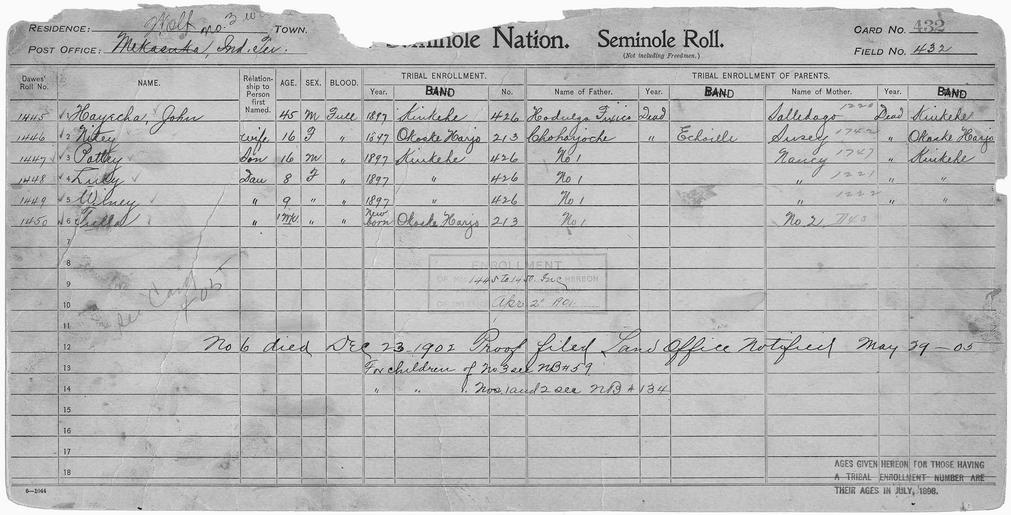 RESIDENCE: TOWN. Seminole Nation. Seminole Roll. CARD NO. 432
POST OFFICE: Mekasuka, Ind. Ter. (Not including Freedmen.) FIELD NO. 432
Dawes' Roll No. NAME. Relationship to Person first Named. AGE. SEX. BLOOD. TRIBAL ENROLLMENT. Year. BAND No. TRIBAL ENROLLMENT OF PARENTS. Name of Father. Year. BAND Name of Mother. Year. BAND
1445 1 Hayecha, John 45 M Full 1897 Kinkehe 426 Hodulga Fixico Dead Salledago 1220 Dead Kinkehe
1446 2 Nitey wife 16 F " 1897 Okoske Harjo 213 Choharjoche " Echoille Susey 1742 " Okoske Harjo
1447 3 Pottey Son 16 M " 1897 Kinkehe 426 No 1 Nancy 1747 " Kinkehe
1448 4 Lucy Dau 8 F " 1897 " 426 No 1 " 1221 " "
1449 5 Wilney " 9 " " 1897 " 426 No 1 " 1222 " "
1450 6 " " " New born Okoske Harjo 213 No 1 No. 2
7
8
ENROLLMENT
9 1445 to 1450 Inc HEREON
10 Apr 2 1901
11
12 No 6 died Dec 23-1902 Proof filed Land Office Notified May 29-05
13 For children of No 3 see NB# 59
14 " " " Nos. 1 and 2 see NB# 134
15
16
17
18
AGES GIVEN HEREON FOR THOSE HAVING
A TRIBAL ENROLLMENT NUMBER ARE
THEIR AGES IN JULY, 1898.
6—1044